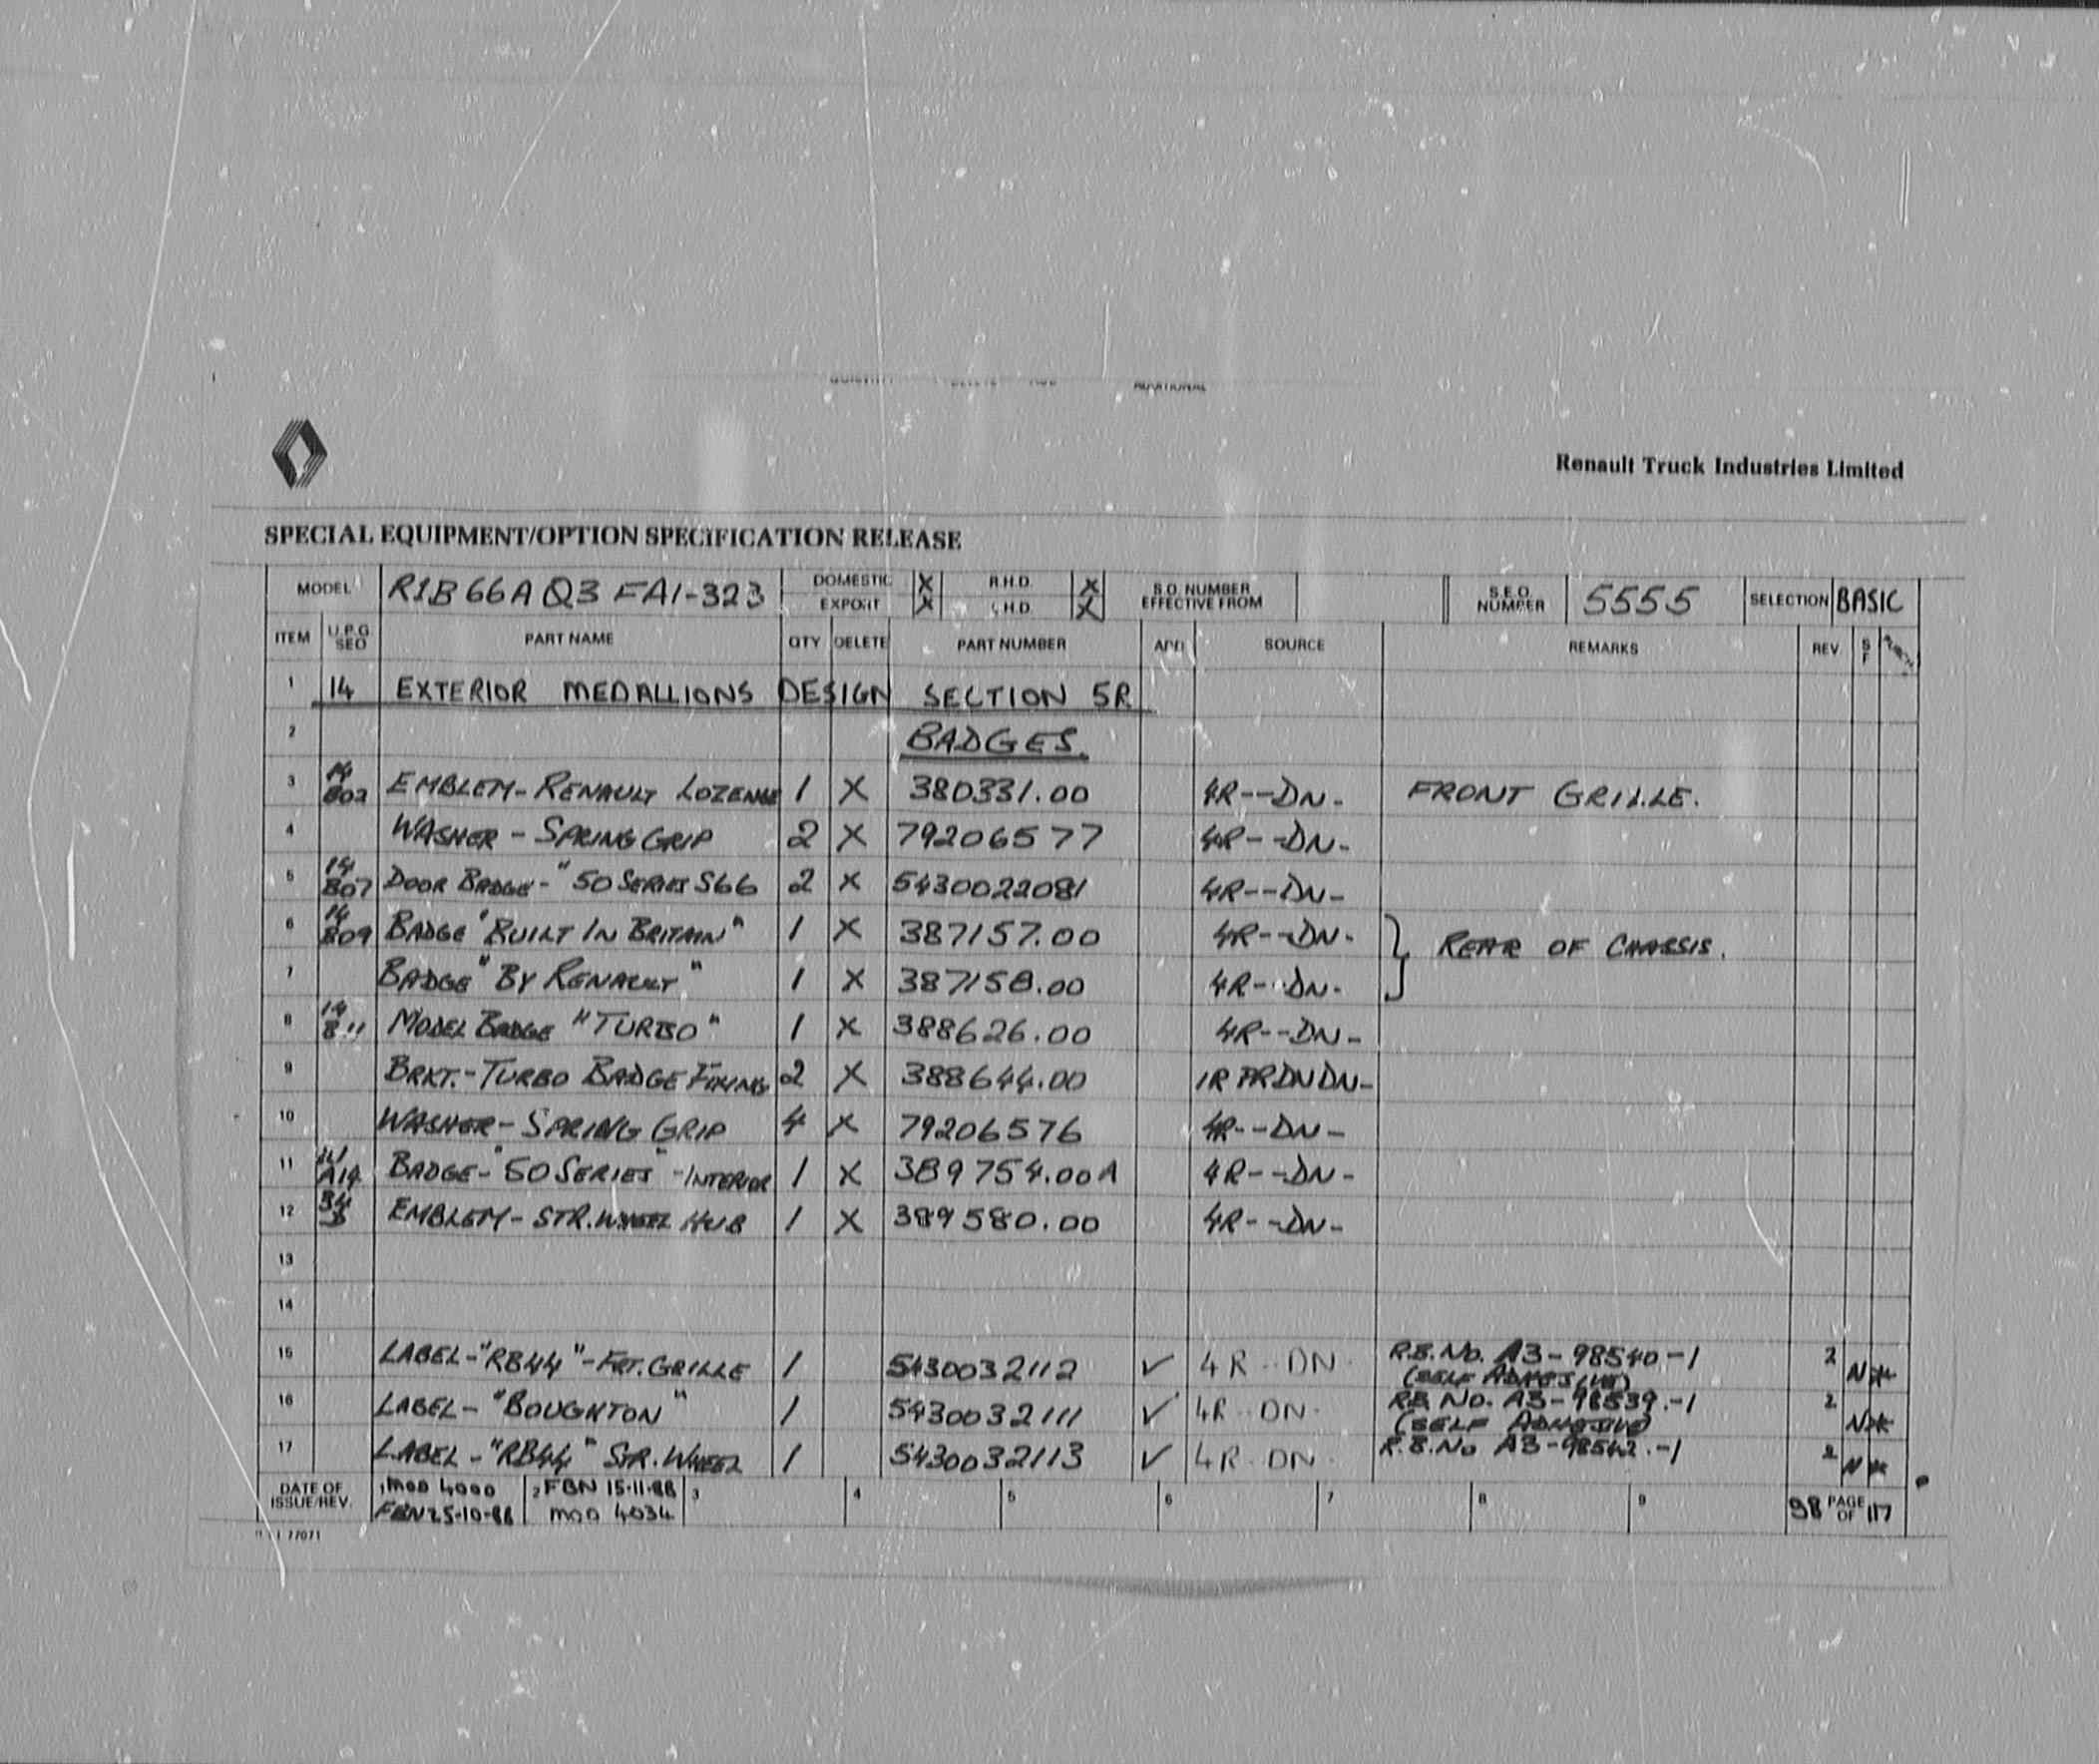 Renault Truck Industries Limited
SPECIAL EQUIPMENT/OPTION SPECIFICATION RELEASE
MODEL R1B66AQ3 FA1-323 DOMESTIC X R.H.D. X S.O. NUMBER EFFECTIVE FROM S.E.O. NUMBER 5555 SELECTION BASIC
EXPORT X L.H.D. X
ITEM U.P.G SEQ PART NAME QTY DELETE PART NUMBER ADD SOURCE REMARKS REV S F
1 14 EXTERIOR MEDALLIONS DESIGN SECTION 5R
2 BADGES.
3 14 B02 EMBLEM - RENAULT LOZENGE 1 X 380331.00 4R--DN- FRONT GRILLE.
4 WASHER - SPRING GRIP 2 X 79206577 4R--DN-
5 14 B07 DOOR BADGE - "50 SERIES S66 2 X 5430022081 4R--DN-
6 14 B09 BADGE "BUILT IN BRITAIN" 1 X 387157.00 4R--DN- } REAR OF CHASSIS.
7 BADGE "BY RENAULT" 1 X 387158.00 4R--DN-
8 14 B11 MODEL BADGE "TURBO" 1 X 388626.00 4R--DN-
9 BRKT. - TURBO BADGE FIXING 2 X 388644.00 1R PRDNDN-
10 WASHER - SPRING GRIP 4 X 79206576 4R--DN-
11 14 A14 BADGE - "50 SERIES" - INTERIOR 1 X 389754.00A 4R--DN-
12 34 B EMBLEM - STR. WHEEL HUB 1 X 389580.00 4R--DN-
13
14
15 LABEL - "RB44" - FRT. GRILLE 1 5430032112 ✓ 4R--DN- R.B. No. A3-98540.-1 (SELF ADHESIVE) 2 N*
16 LABEL - "BOUGHTON" 1 5430032111 ✓ 4R--DN- RB No. A3-98539.-1 (SELF ADHESIVE) 2 N*
17 LABEL - "RB44" STR. WHEEL 1 5430032113 ✓ 4R-DN- R.B. No A3-98542.-1 2 N*
DATE OF ISSUE/REV. 1 MOD 4000 2 FBN 15-11-88 3 4 5 6 7 8 9 98 PAGE OF 117
FBN 25-10-88 MOD 4034
77071